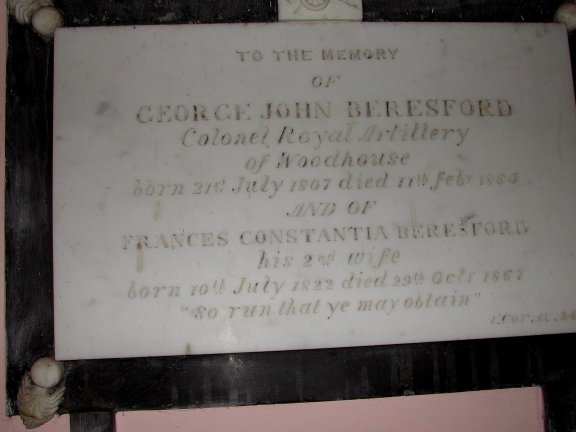 TO THE MEMORY
OF
GEORGE JOHN BERESFORD
Colonel Royal Artillery
of Woodhouse
born 21st July 1807 died 11th feby 1864
AND OF
FRANCES CONSTANTIA BERESFORD
his 2nd wife
born 10th July 1822 died 29th Octr 1867
"So run that ye may obtain"
1.Cor.IX.24